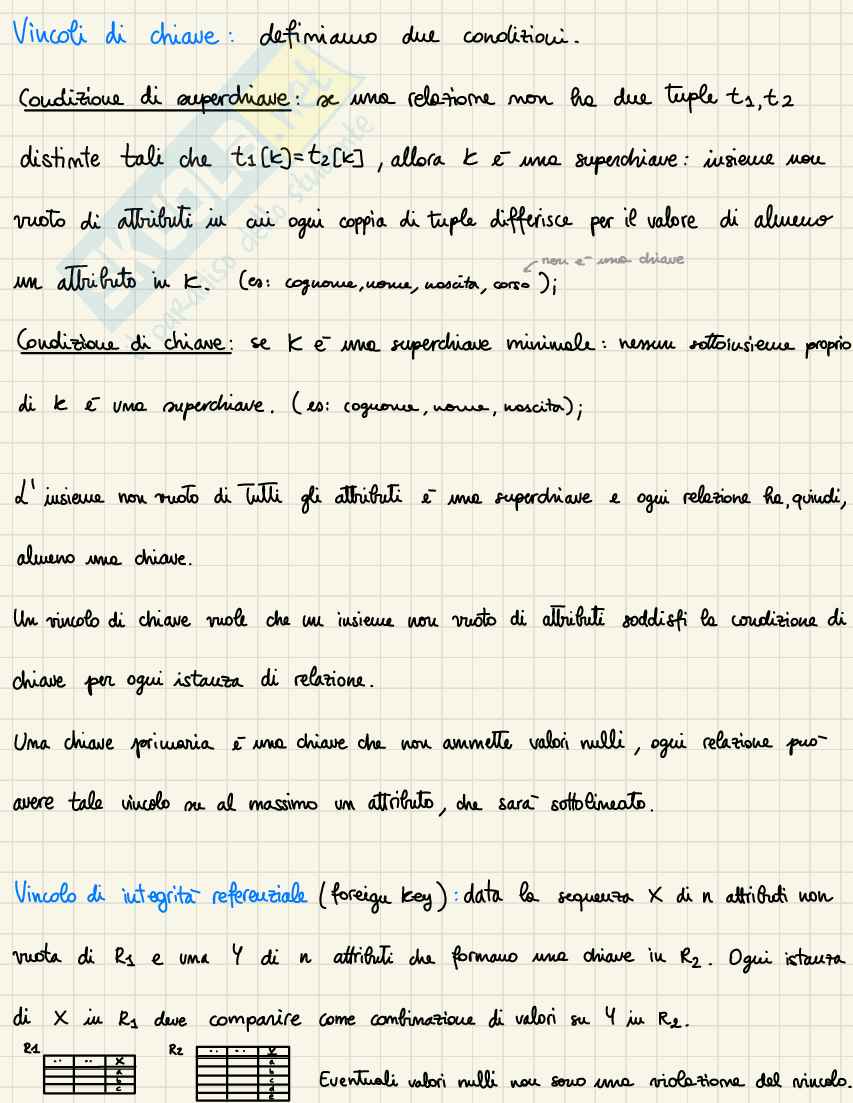 Vincoli di chiave: definiamo due condizioni.
Condizione di superchiave: se una relazione non ha due tuple t1, t2
distinte tali che t1[k]=t2[k], allora k è una superchiave: insieme non
vuoto di attributi in cui ogni coppia di tuple differisce per il valore di almeno
non è una chiave
un attributo in k. (es: cognome, nome, nascita, corso);
Condizione di chiave: se k è una superchiave minimale: nessun sottoinsieme proprio
di k è una superchiave. (es: cognome, nome, nascita);
L'insieme non vuoto di tutti gli attributi è una superchiave e ogni relazione ha, quindi,
almeno una chiave.
Un vincolo di chiave vuole che un insieme non vuoto di attributi soddisfi la condizione di
chiave per ogni istanza di relazione.
Una chiave primaria è una chiave che non ammette valori nulli, ogni relazione può
avere tale vincolo su al massimo un attributo, che sarà sottolineato.
Vincolo di integrità referenziale (foreign key): data la sequenza X di n attributi non
vuota di R1 e una Y di n attributi che formano una chiave in R2. Ogni istanza
di X in R1 deve comparire come combinazione di valori su Y in R2.
R1 .. .. X a b c
R2 .. .. Y a b c d e
Eventuali valori nulli non sono una violazione del vincolo.
SKUOLA.net
il paradiso dello studente